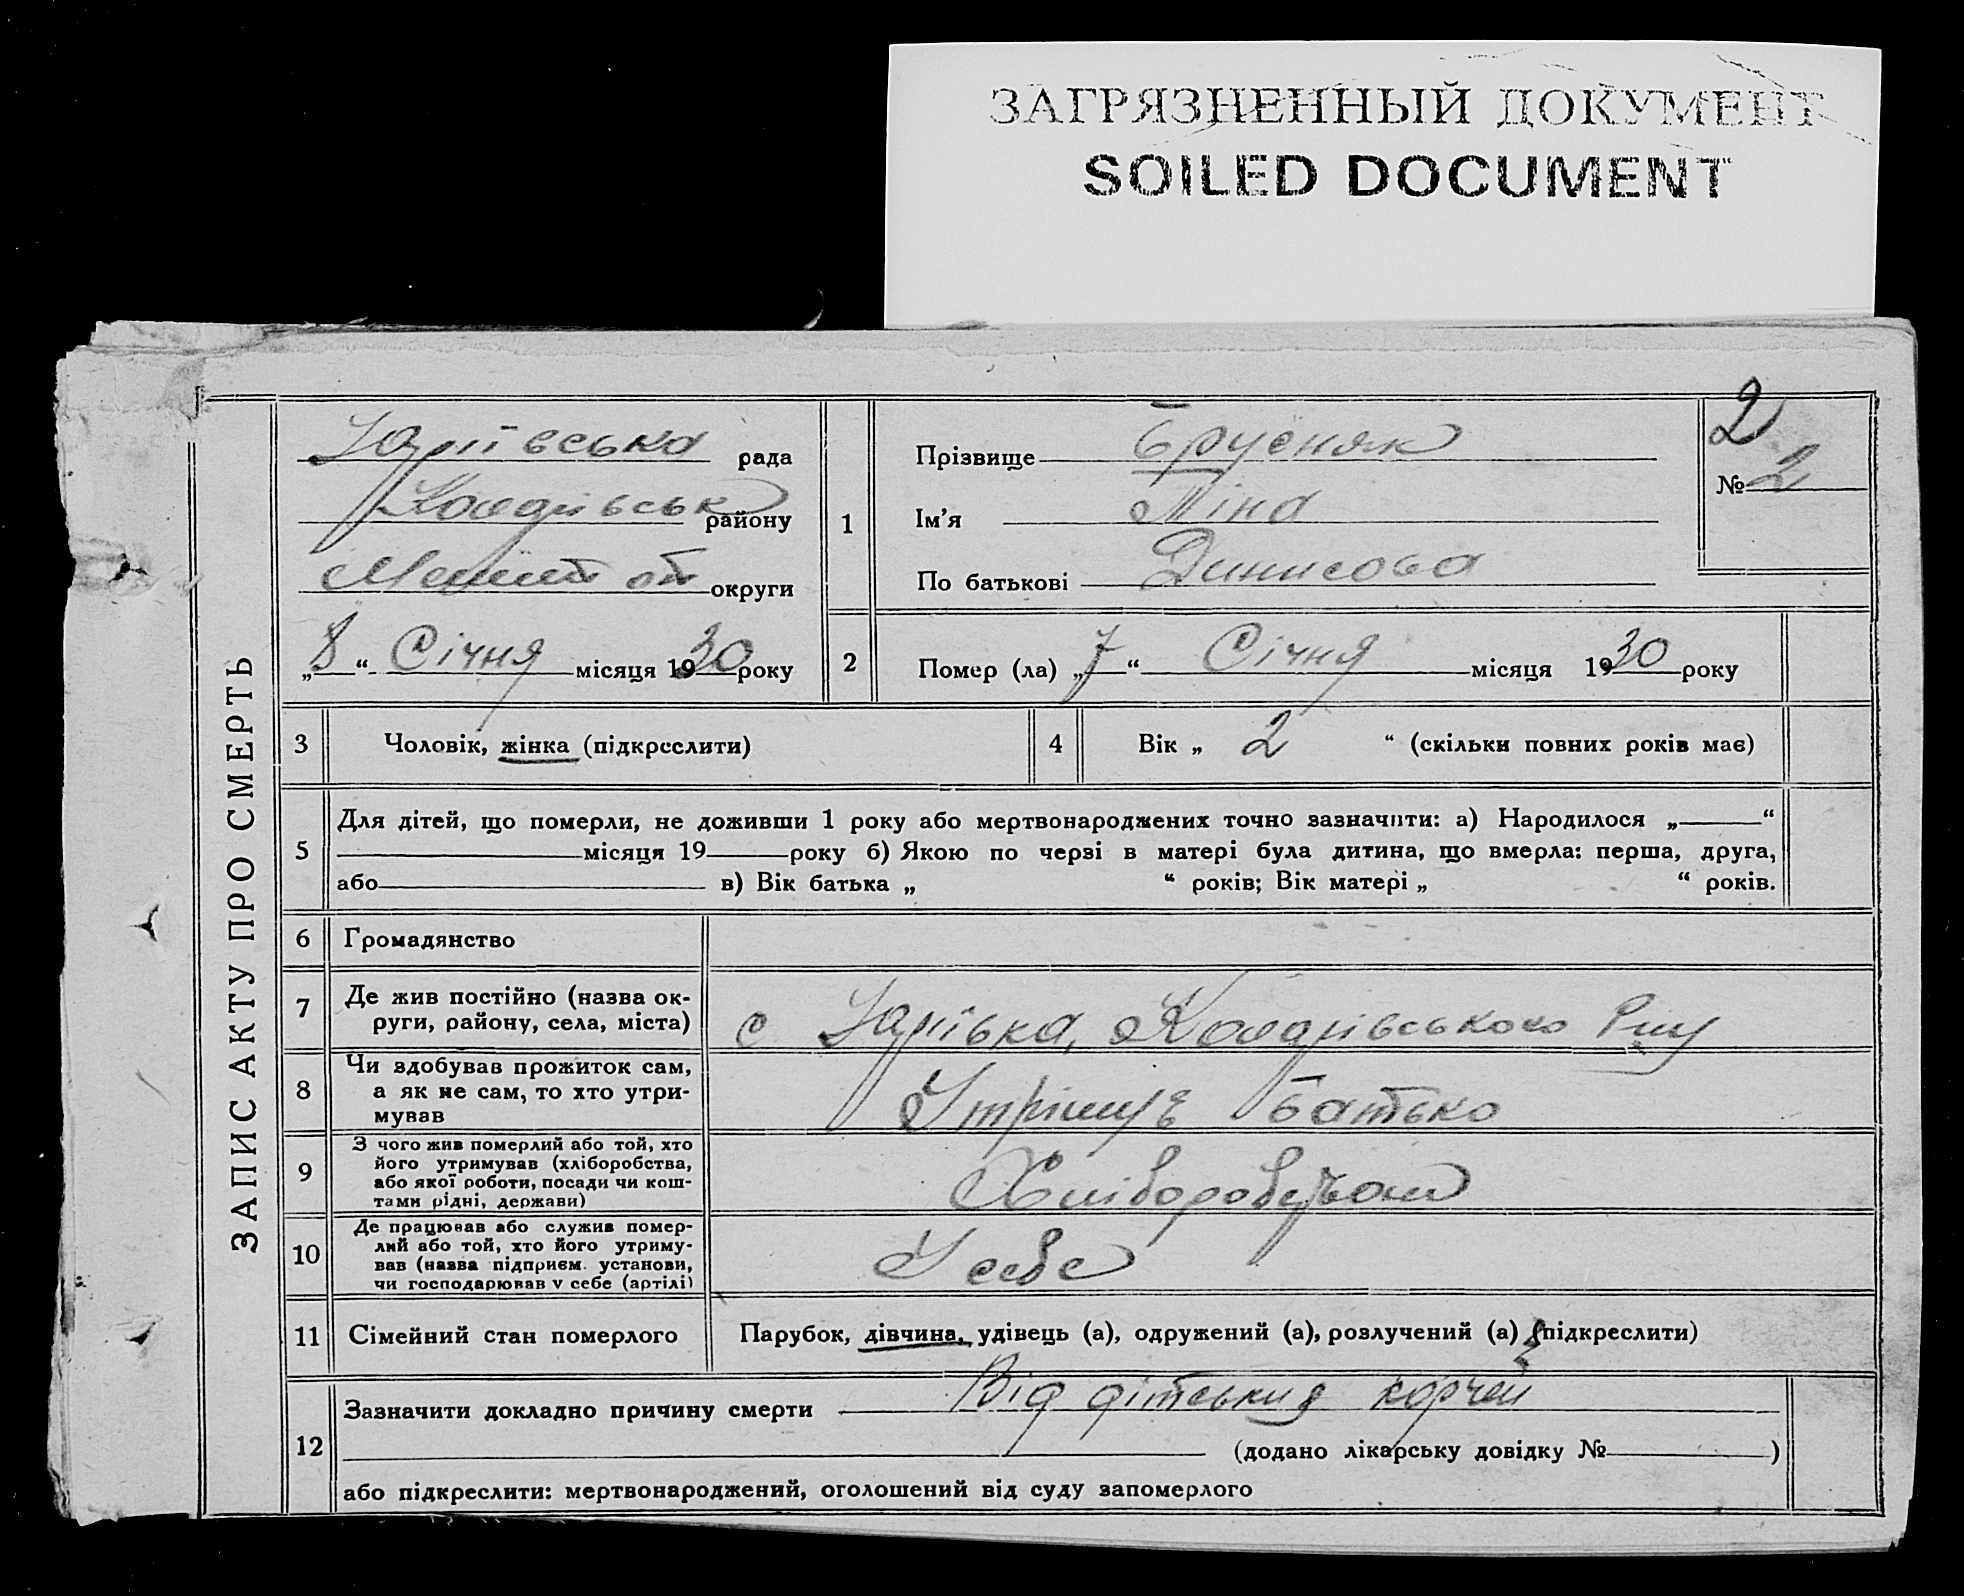 ЗАГРЯЗНЕННЫЙ ДОКУМЕНТ
SOILED DOCUMENT
ЗАПИС АКТУ ПРО СМЕРТЬ
рада
району
округи
„8“ Січня місяця 1930 року
1
Прізвище Брусняк
Ім’я
По батькові Динисова
2
№ 2
2
Помер (ла) „7“ Січня місяця 1930 року
3
Чоловік, жінка (підкреслити)
4
Вік „ 2 “ (скільки повних років має)
5
Для дітей, що померли, не доживши 1 року або мертвонароджених точно зазначити: а) Народилося „ “
місяця 19 року б) Якою по черзі в матері була дитина, що вмерла: перша, друга,
або в) Вік батька „ “ років; Вік матері „ “ років.
6
Громадянство
7
Де жив постійно (назва ок-
руги, району, села, міста)
с
8
Чи здобував прожиток сам,
а як не сам, то хто утри-
мував
батько
9
З чого жив померлий або той, хто
його утримував (хліборобства,
або якої роботи, посади чи кош-
тами рідні, держави)
10
Де працював або служив помер-
лий або той, хто його утриму-
вав (назва підприєм. установи,
чи господарював у себе (артілі)
У себе
11
Сімейний стан померлого
Парубок, дівчина, удівець (а), одружений (а), розлучений (а) (підкреслити)
12
Зазначити докладно причину смерти Від
(додано лікарську довідку № )
або підкреслити: мертвонароджений, оголошений від суду запомерлого